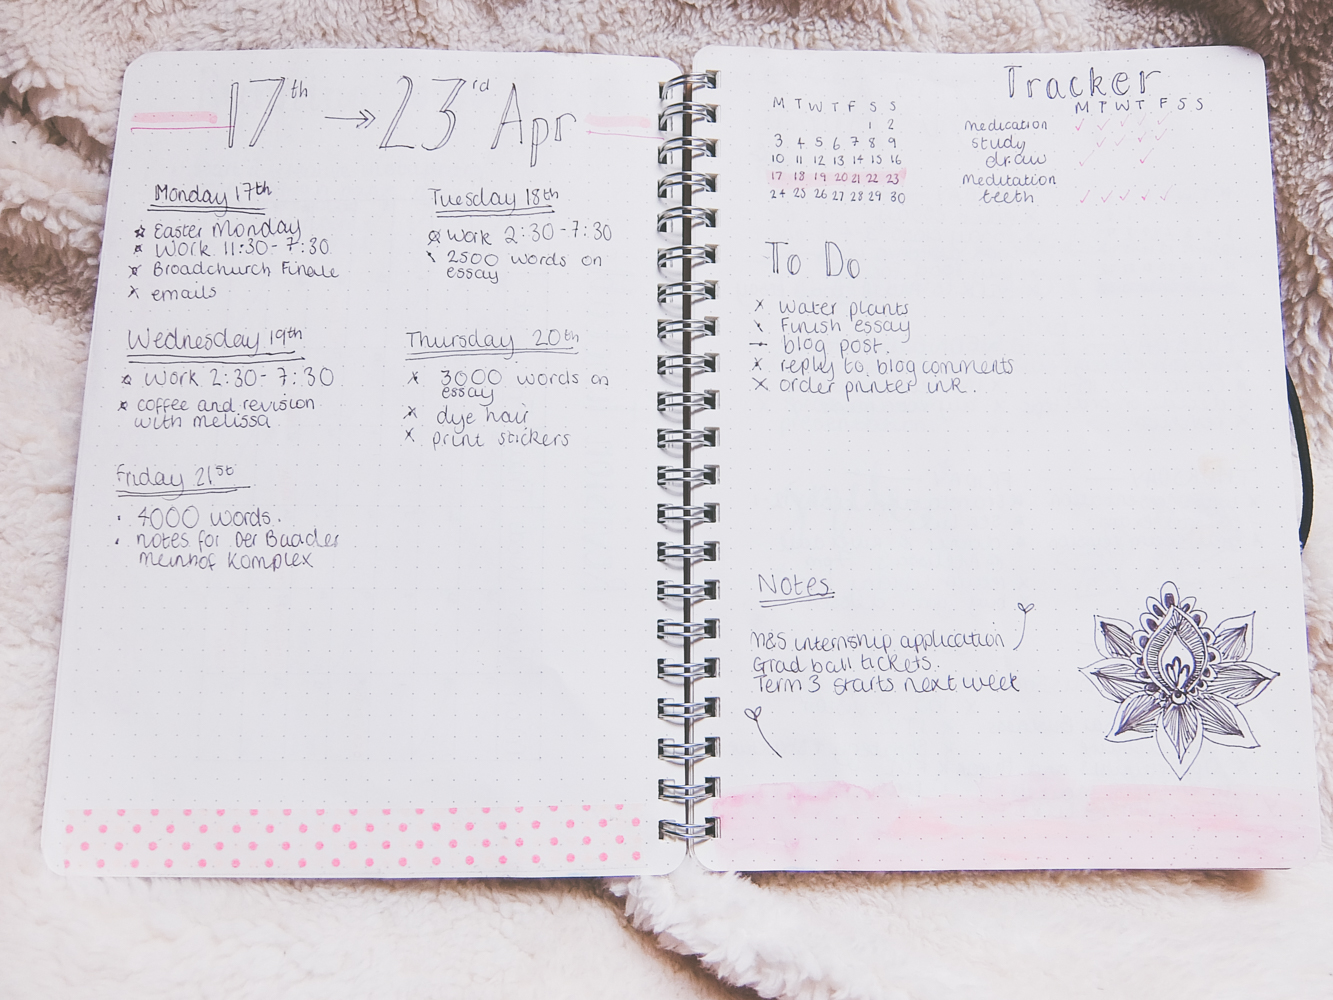 17th → 23rd Apr
Monday 17th
Easter Monday
Work 11:30-7:30
Broadchurch Finale
emails
Tuesday 18th
Work 2:30-7:30
2500 words on
essay
Wednesday 19th
Work 2:30-7:30
coffee and revision
with melissa
Thursday 20th
3000 words on
essay
dye hair
print stickers
Friday 21st
4000 words.
notes for Der Baader
Meinhof Komplex
Tracker
M T W T F S S
1 2
3 4 5 6 7 8 9
10 11 12 13 14 15 16
17 18 19 20 21 22 23
24 25 26 27 28 29 30
M T W T F S S
medication
study
draw
meditation
teeth
To Do
Water plants
Finish essay
blog post.
reply to blog comments
order printer ink.
Notes
M&S internship application
Grad ball tickets.
Term 3 starts next week